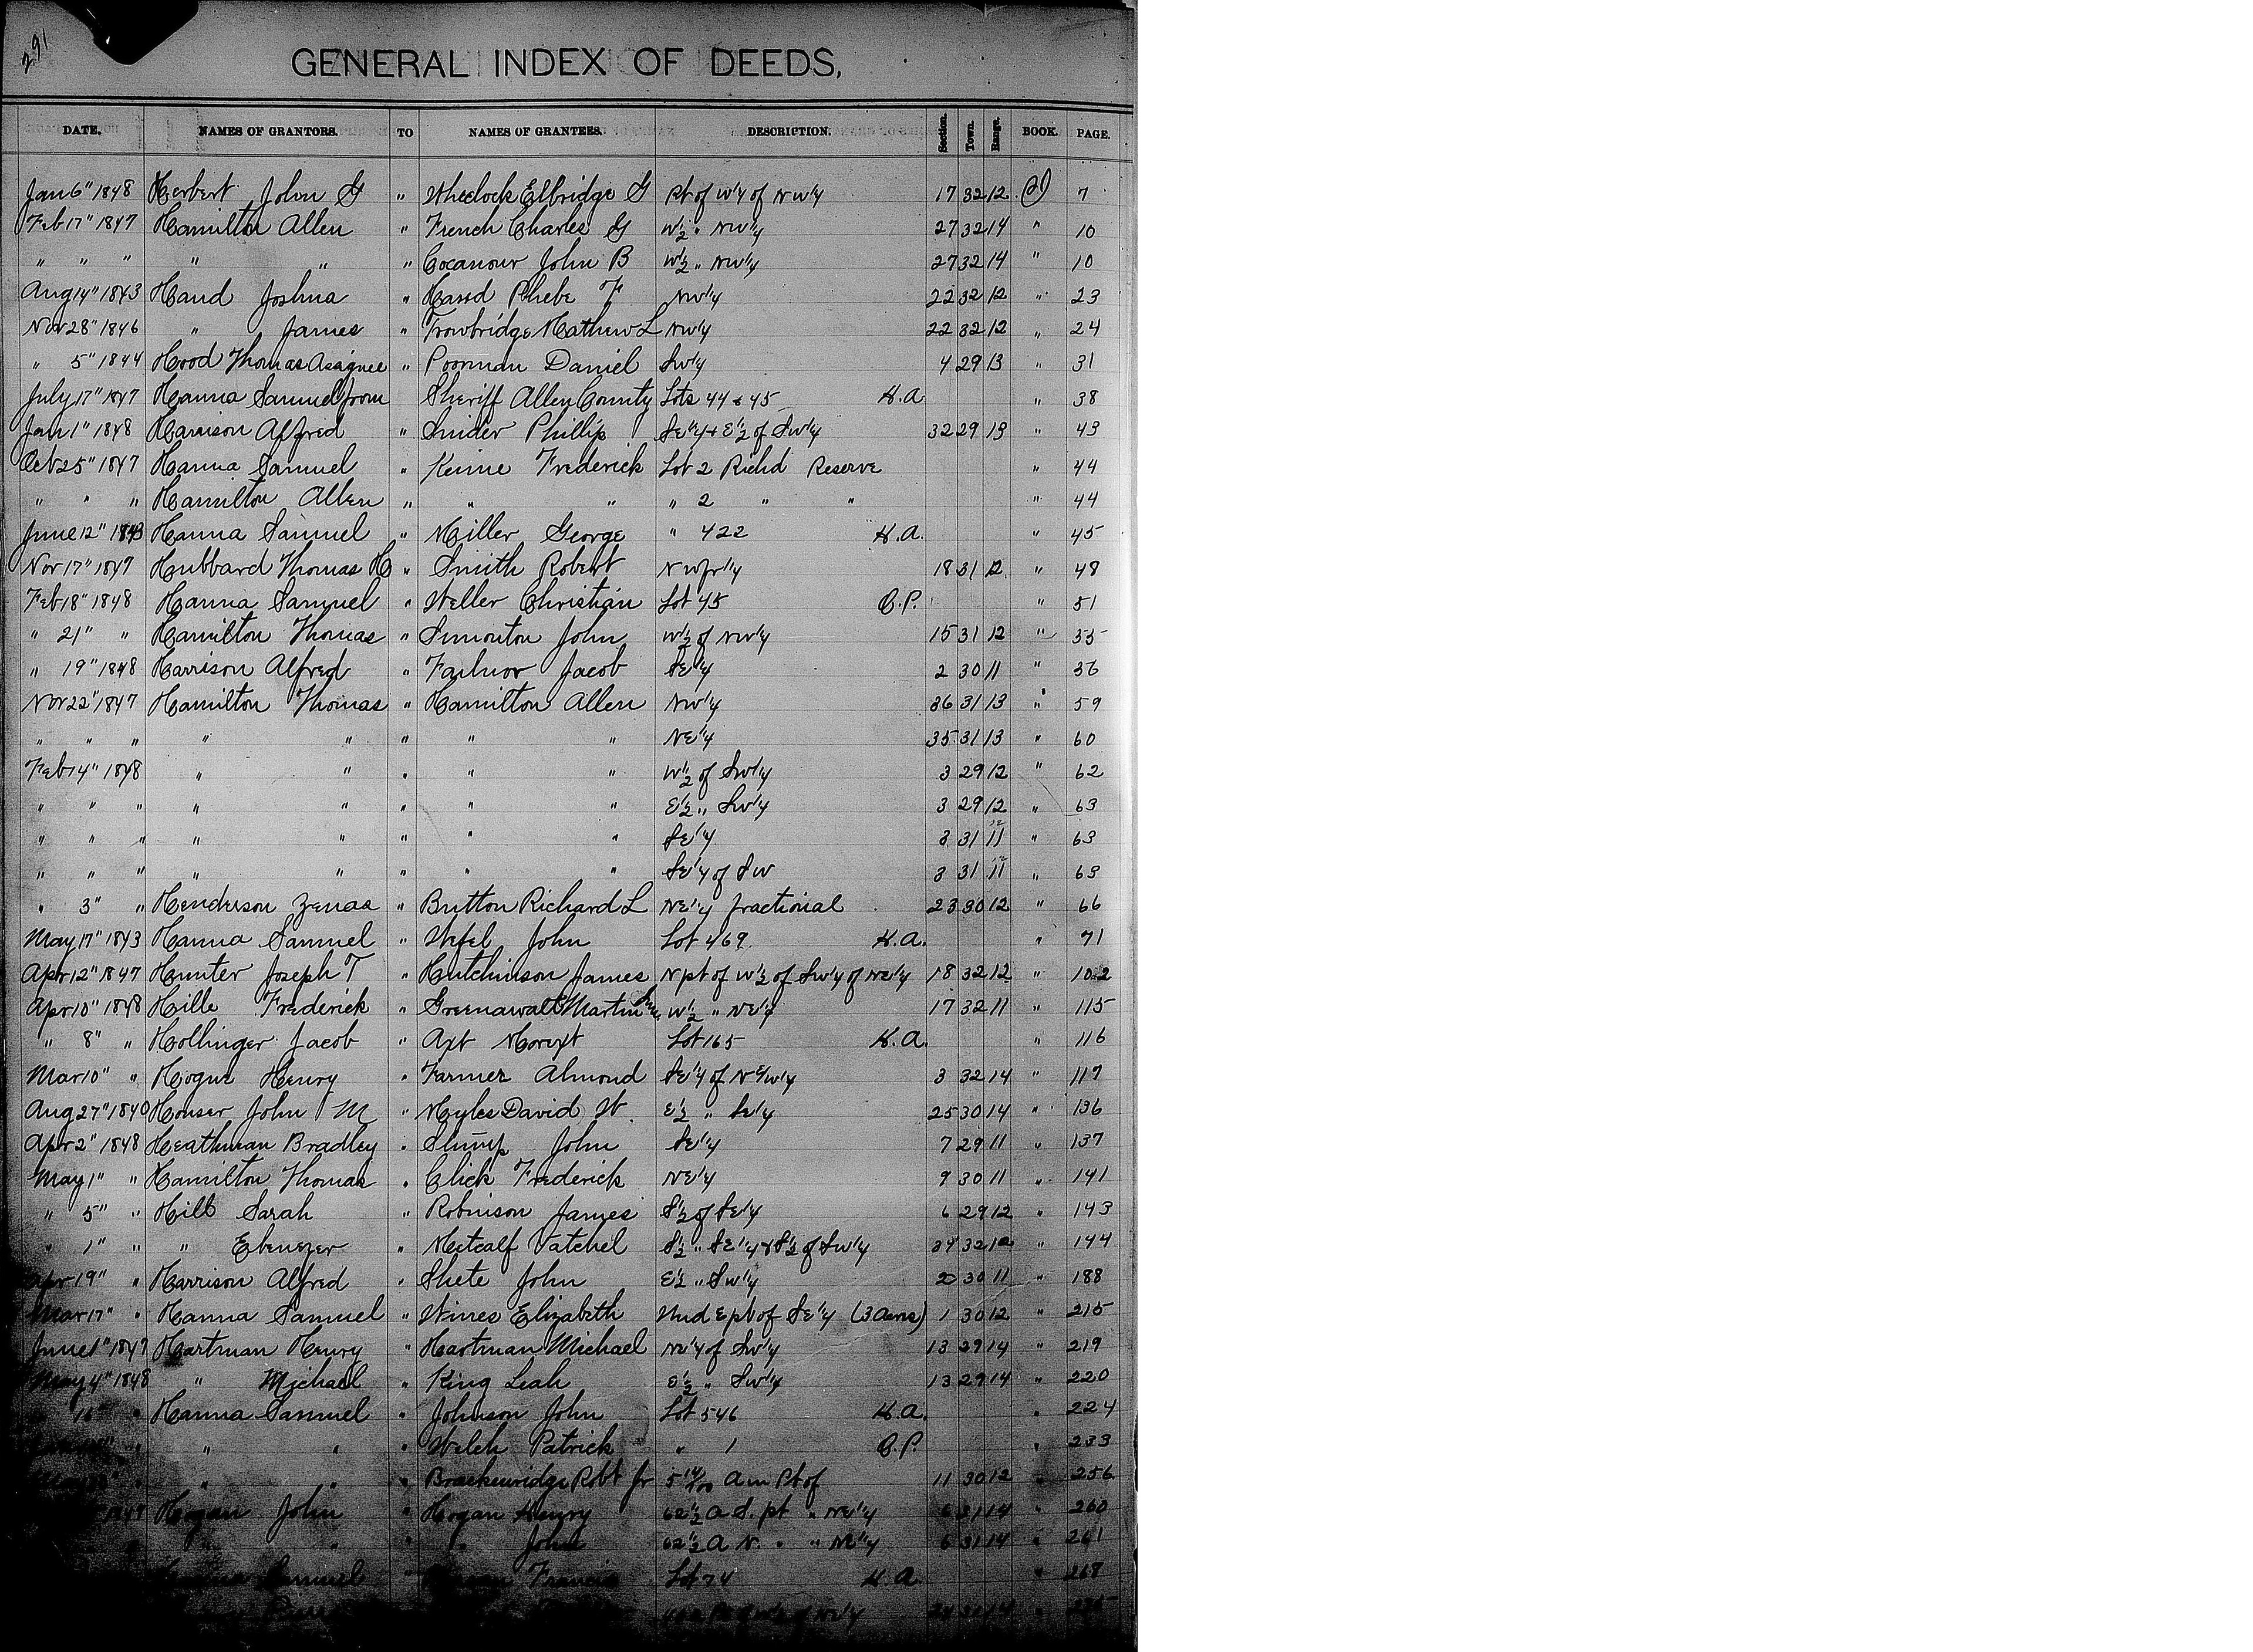 291
GENERAL INDEX OF DEEDS.
DATE. NAMES OF GRANTORS. TO NAMES OF GRANTEES. DESCRIPTION. Section. Town. Range. BOOK. PAGE.
Jan 6" 1848 Herbert John G " Wheelock Elbridge G Pt of W 1/4 of NW 1/4 17 32 12 7
Feb 17" 1847 Hamilton Allen " French Charles G W 1/2 " NW 1/4 27 32 14 " 10
" " " " " " Cocanour John B W 1/2 " NW 1/4 27 32 14 " 10
Aug 14" 1843 Hand Joshua " Hand Phebe F NW 1/4 22 32 12 " 23
Nov 28" 1846 " James " Trowbridge Mathew L NW 1/4 22 32 12 " 24
" 5" 1844 Hood Thomas Assignee " Poorman Daniel SW 1/4 4 29 13 " 31
July 17" 1847 Hanna Samuel from Sheriff Allen County Lots 44 & 45 H.A. " 38
Jan 1" 1848 Harrison Alfred " Snider Phillip SE 1/4 + E 1/2 of SW 1/4 32 29 13 " 43
Oct 25" 1847 Hanna Samuel " Keine Frederick Lot 2 Richd Reserve " 44
" " " Hamilton Allen " " " " 2 " " " 44
June 12" 1843 Hanna Samuel " Miller George " 422 H.A. " 45
Nov 17" 1847 Hubbard Thomas H " Smith Robert NW fr 1/4 18 31 12 " 48
Feb 18" 1848 Hanna Samuel " Weller Christian Lot 45 C.P. " 51
" 21" " Hamilton Thomas " Simonton John W 1/2 of NW 1/4 15 31 12 " 55
" 19" 1848 Harrison Alfred " Jacob SE 1/4 2 30 11 " 56
Nov 22" 1847 Hamilton Thomas " Hamilton Allen NW 1/4 36 31 13 " 59
" " " " " " " " NE 1/4 35 31 13 " 60
Feb 14" 1848 " " " " " W 1/2 of SW 1/4 3 29 12 " 62
" " " " " " " " E 1/2 " SW 1/4 3 29 12 " 63
" " " " " " " " SE 1/4 3 31 11 12 " 63
" " " " " " " " SE 1/4 of SW 3 31 11 12 " 63
" 3" " Henderson Zenas " Britton Richard L NE 1/4 fractional 23 30 12 " 66
May 17" 1843 Hanna Samuel " Wefel John Lot 469 H.A. " 71
Apr 12" 1847 Hunter Joseph T " Hutchinson James N pt of W 1/2 of SW 1/4 of NE 1/4 18 32 12 " 102
Apr 10" 1848 Hille Frederick " Greenawalt Martin W 1/2 " NE 1/4 17 32 11 " 115
" 8" " Hollinger Jacob " Axt Lot 165 H.A. " 116
Mar 10" " Hogue Henry " Farmer Almond SE 1/4 of 3 32 14 " 117
Aug 27" 1840 Houser John M " Myles David W. E 1/2 " SE 1/4 25 30 14 " 136
Apr 2" 1848 Heathman Bradley " Slump John SE 1/4 7 29 11 " 137
May 1" " Hamilton Thomas " Click Frederick NE 1/4 9 30 11 " 141
" 5" " Hill Sarah " Robinson James S 1/2 of SE 1/4 6 29 12 " 143
" 1" " " Ebenezer " Metcalf Vatchel S 1/2 " SE 1/4 & S 1/2 of SW 1/4 34 32 12 " 144
Apr 19" " Harrison Alfred " Shete John E 1/2 " SW 1/4 2 30 11 " 188
Mar 17" " Hanna Samuel " Wines Elizabeth Und E pt of SE 1/4 (3 Acres) 1 30 12 " 215
June 1" 1847 Hartman Henry " Hartman Michael NE 1/4 of SW 1/4 13 29 14 " 219
May 4" 1848 " Michael " King Leah E 1/2 " SW 1/4 13 29 14 " 220
" Hanna Samuel " Johnson John Lot 546 H.A. " 224
" " " " Welch Patrick " 1 C.P. " 233
" " " " Brackenridge Robt Jr A in Pt of 11 30 12 " 256
Hogan John " Hogan Henry 62 1/2 A S. pt " NE 1/4 6 31 14 " 260
" " " " John 62 1/2 A N. " " NE 1/4 6 31 14 " 261
Samuel Francis Lot 74 H.A. " 268